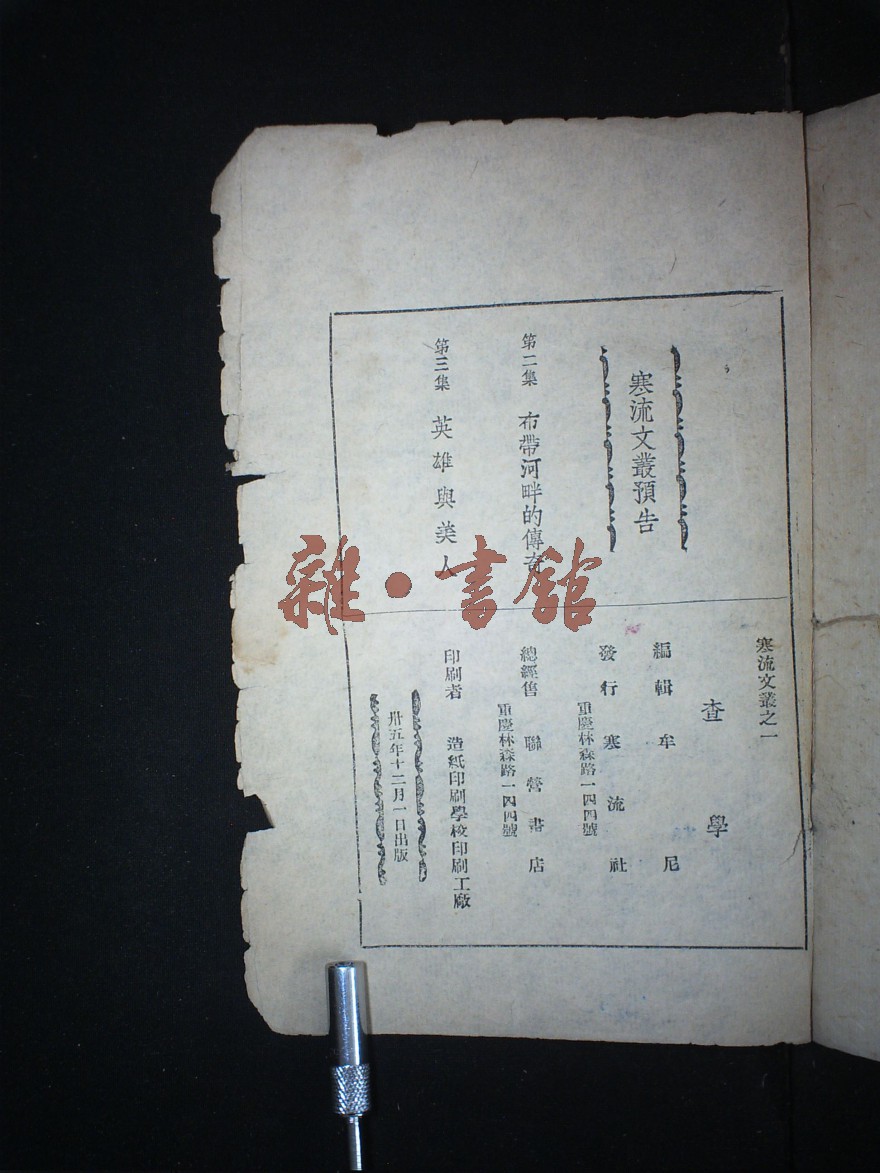 寒流文叢預告
第二集 布帶河畔的傳奇
第三集 英雄與美人
寒流文叢之一
查學
編輯 牟尼
發行 寒流社
重慶林森路一四四號
總經售 聯營書店
重慶林森路一四四號
印刷者 造紙印刷學校印刷工廠
卅五年十二月一日出版
雜·書館